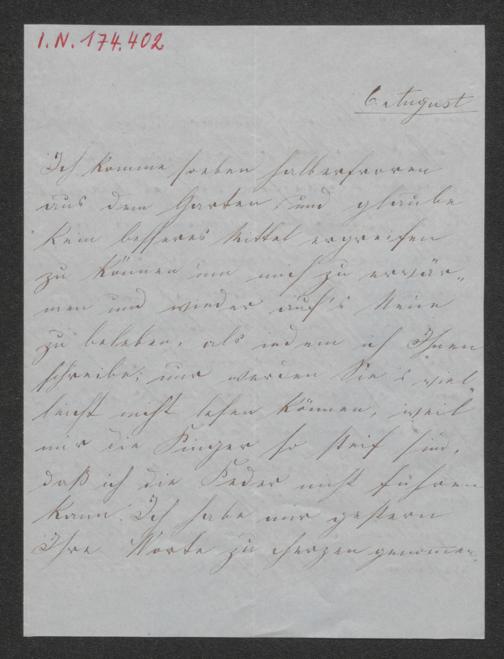 I.N. 174.402
6. August
Ich komme soeben halberfroren
aus dem Garten, und glaube
kein besseres Mittel ergreifen
zu können um mich zu erwär-
men und wieder auf's Neue
zu beleben, als indem ich Ihnen
schreibe; nur werden Sie's viel-
leicht nicht lesen können, weil
mir die Finger so steif sind,
daß ich die Feder nicht führen
kann. Ich habe mir gestern
Ihre Worte zu Herzen genommen